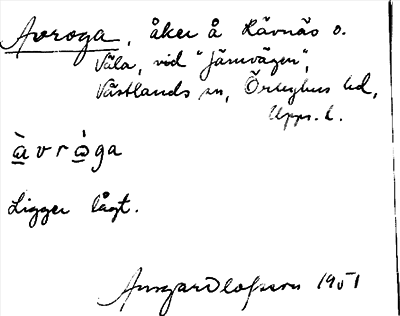 Avroga, åker å Rävnäs o.
Väla, vid "Järnvägen",
Västlands sn, Örbyhus hd,
Upps. l.
àvròga
Ligger lågt.
Ansgar Olofsson 1951